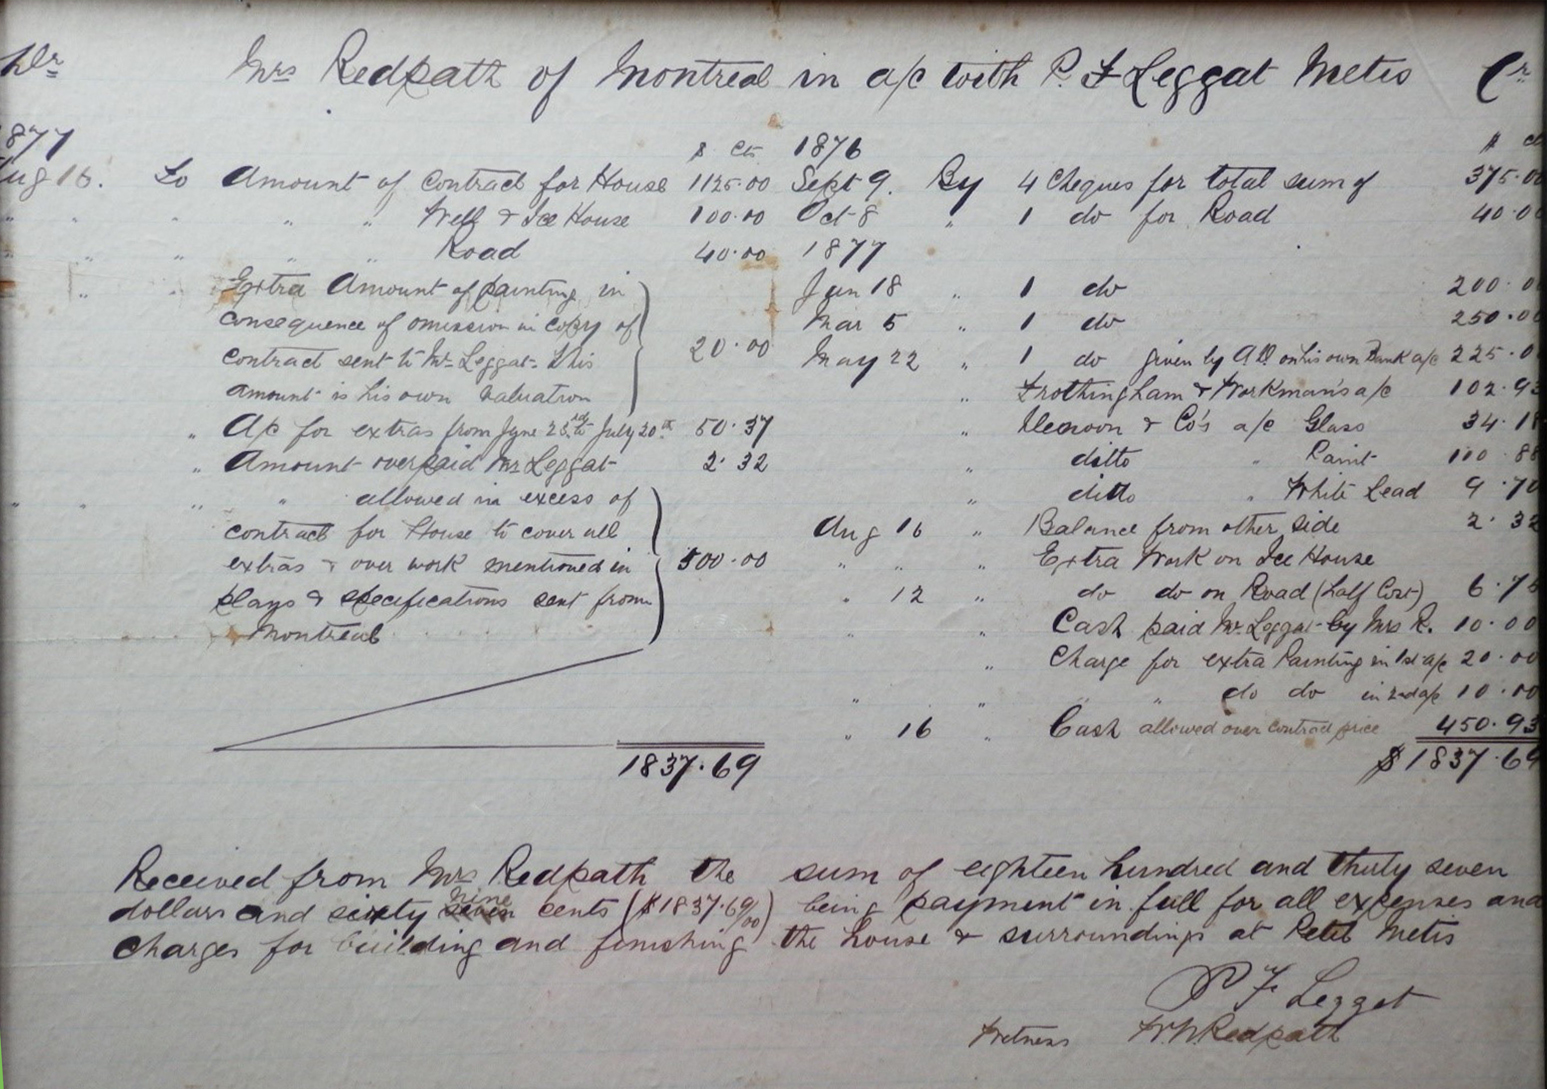 Dr Mrs Redpath of Montreal in a/c with P. F Leggat Metis Cr
1877 $ cts 1876 $ ct
Aug 16. To Amount of contract for House 1125.00 Sept 9. By 4 Cheques for total sum of 375.00
" " " " Well & Ice House 100.00 Oct 8 " 1 do for Road 40.00
" " " " " Road 40.00 1877
" " Extra Amount of painting in Jan 18 " 1 do 200.00
consequence of omission in copy of Mar 5 " 1 do 250.00
contract sent to Mr Leggat. This 20.00 May 22 " 1 do given by on his own Bank a/c 225.0
amount is his own valuation " Frothingham & Workman's a/c 102.93
" A/c for extras from June 23rd to July 20th 50.37 " & Co's a/c Glass 34.18
" Amount overpaid Mr Leggat 2.32 " ditto " Paint 100.88
" " " allowed in excess of " ditto " White Lead 9.70
contract for House to cover all Aug 16 " Balance from other side 2.32
extras & over work mentioned in 500.00 " " " Extra Work on Ice House
plans & specifications sent from " 12 " do do on Road (Half Cost) 6.75
Montreal " " Cash paid Mr Leggat by Mrs R. 10.00
" Charge for extra Painting in 1st a/c 20.00
" " " do do in 2nd a/c 10.00
" 16 " Cash allowed over contract price 450.93
1837.69 $1837.69
Received from Mrs Redpath the sum of eighteen hundred and thirty seven
dollars and sixty seven nine cents ($1837.69/00) being payment in full for all expenses and
charges for building and finishing the house & surroundings at Petit Metis
P F Leggat
Witness Redpath